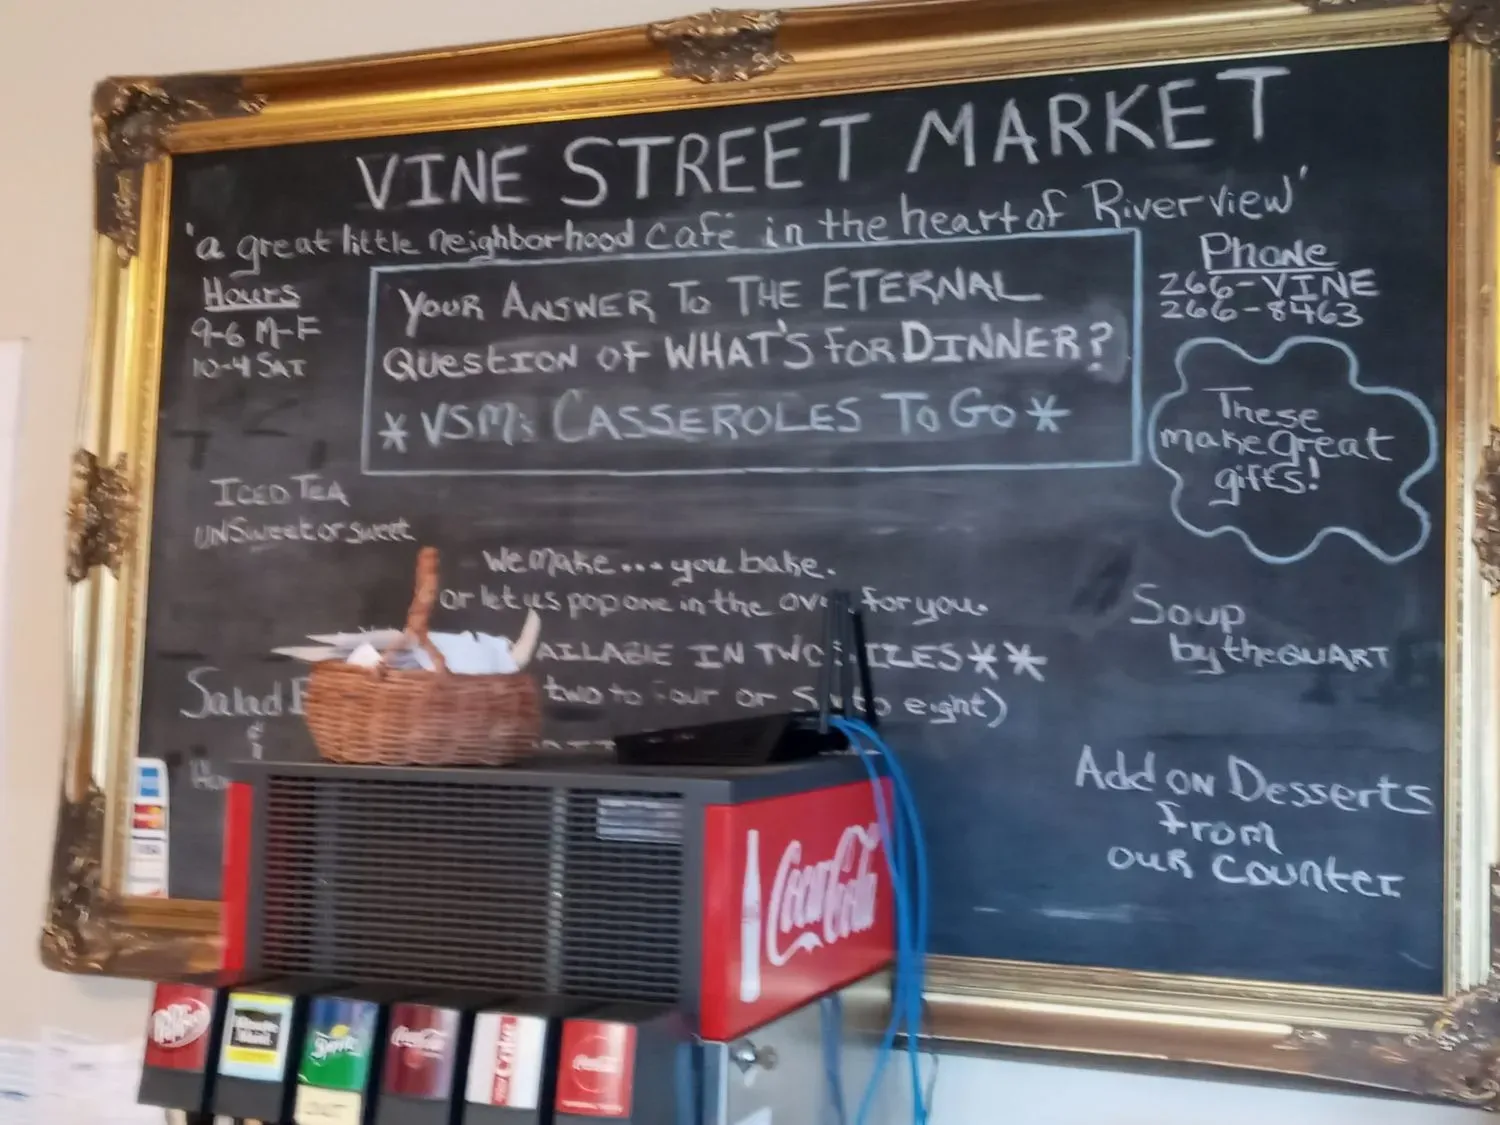 VINE STREET MARKET
'a great little neighborhood café in the heart of Riverview'
Hours
9-6 M-F
10-4 SAT
YOUR ANSWER TO THE ETERNAL
QUESTION OF WHAT'S FOR DINNER?
*VSM: CASSEROLES TO GO*
Phone
266-VINE
266-8463
These
make great
gifts!
ICED TEA
UNSweet or sweet
We make... you bake.
or let us pop one in the for you.
IN TWO **
two to four or to eight)
Salad
&
Soup
by the QUART
Add on Desserts
from
our counter
Coca-Cola
Dr Pepper
Sprite
Coca-Cola
Coke
Coca-Cola
VISA